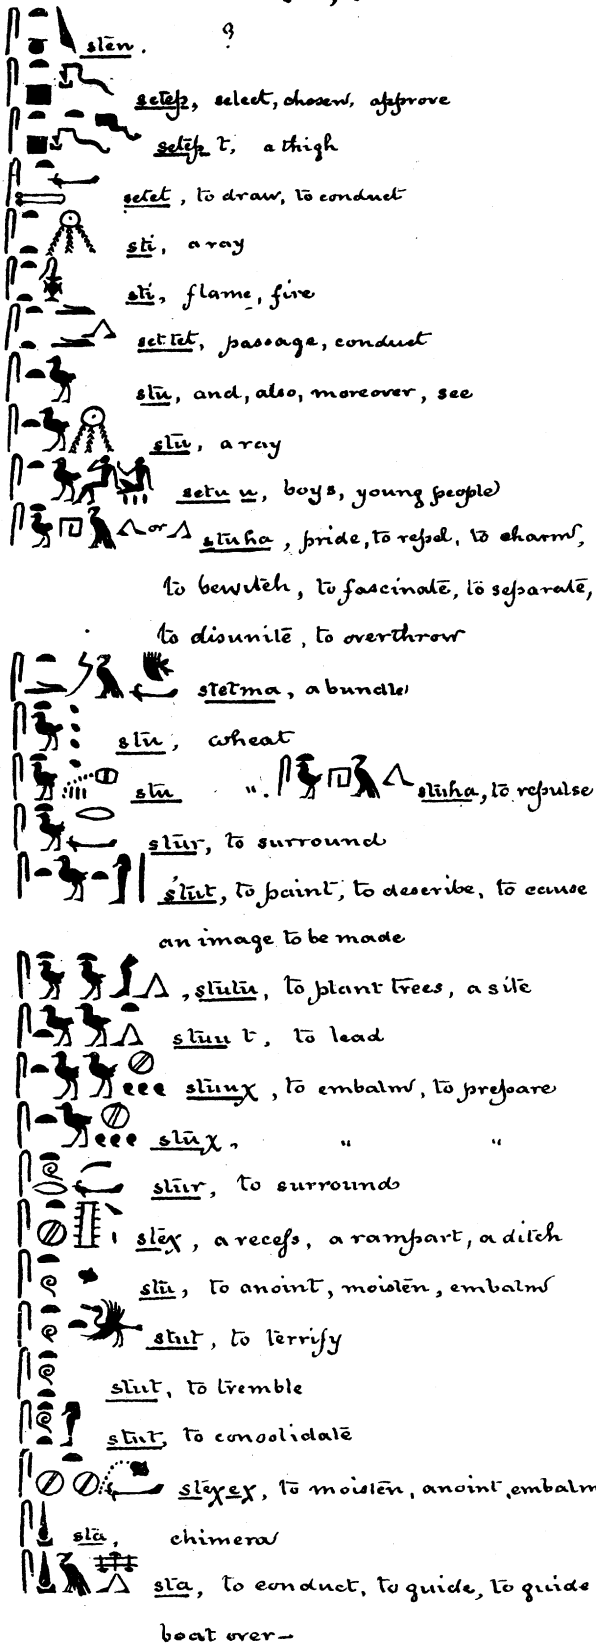 sten. ?
setep, select, chosen, approve
setep t, a thigh
setet, to draw, to conduct
sti, a ray
sti, flame, fire
set tet, passage, conduct
stu, and, also, moreover, see
stu, a ray
setu u, boys, young people
stuha, pride, to repel, to charm,
to bewitch, to fascinate, to separate,
to disunite, to overthrow
stetma, a bundle
stu, wheat
stu ". stuha, to repulse
stur, to surround
stut, to paint, to describe, to cause
an image to be made
, stutu, to plant trees, a site
stuu t, to lead
stuuχ, to embalm, to prepare
stuχ, " "
stur, to surround
steχ, a recess, a rampart, a ditch
stu, to anoint, moisten, embalm
stut, to terrify
stut, to tremble
stut, to consolidate
steχeχ, to moisten, anoint, embalm
sta, chimera
sta, to conduct, to guide, to guide
boat over—